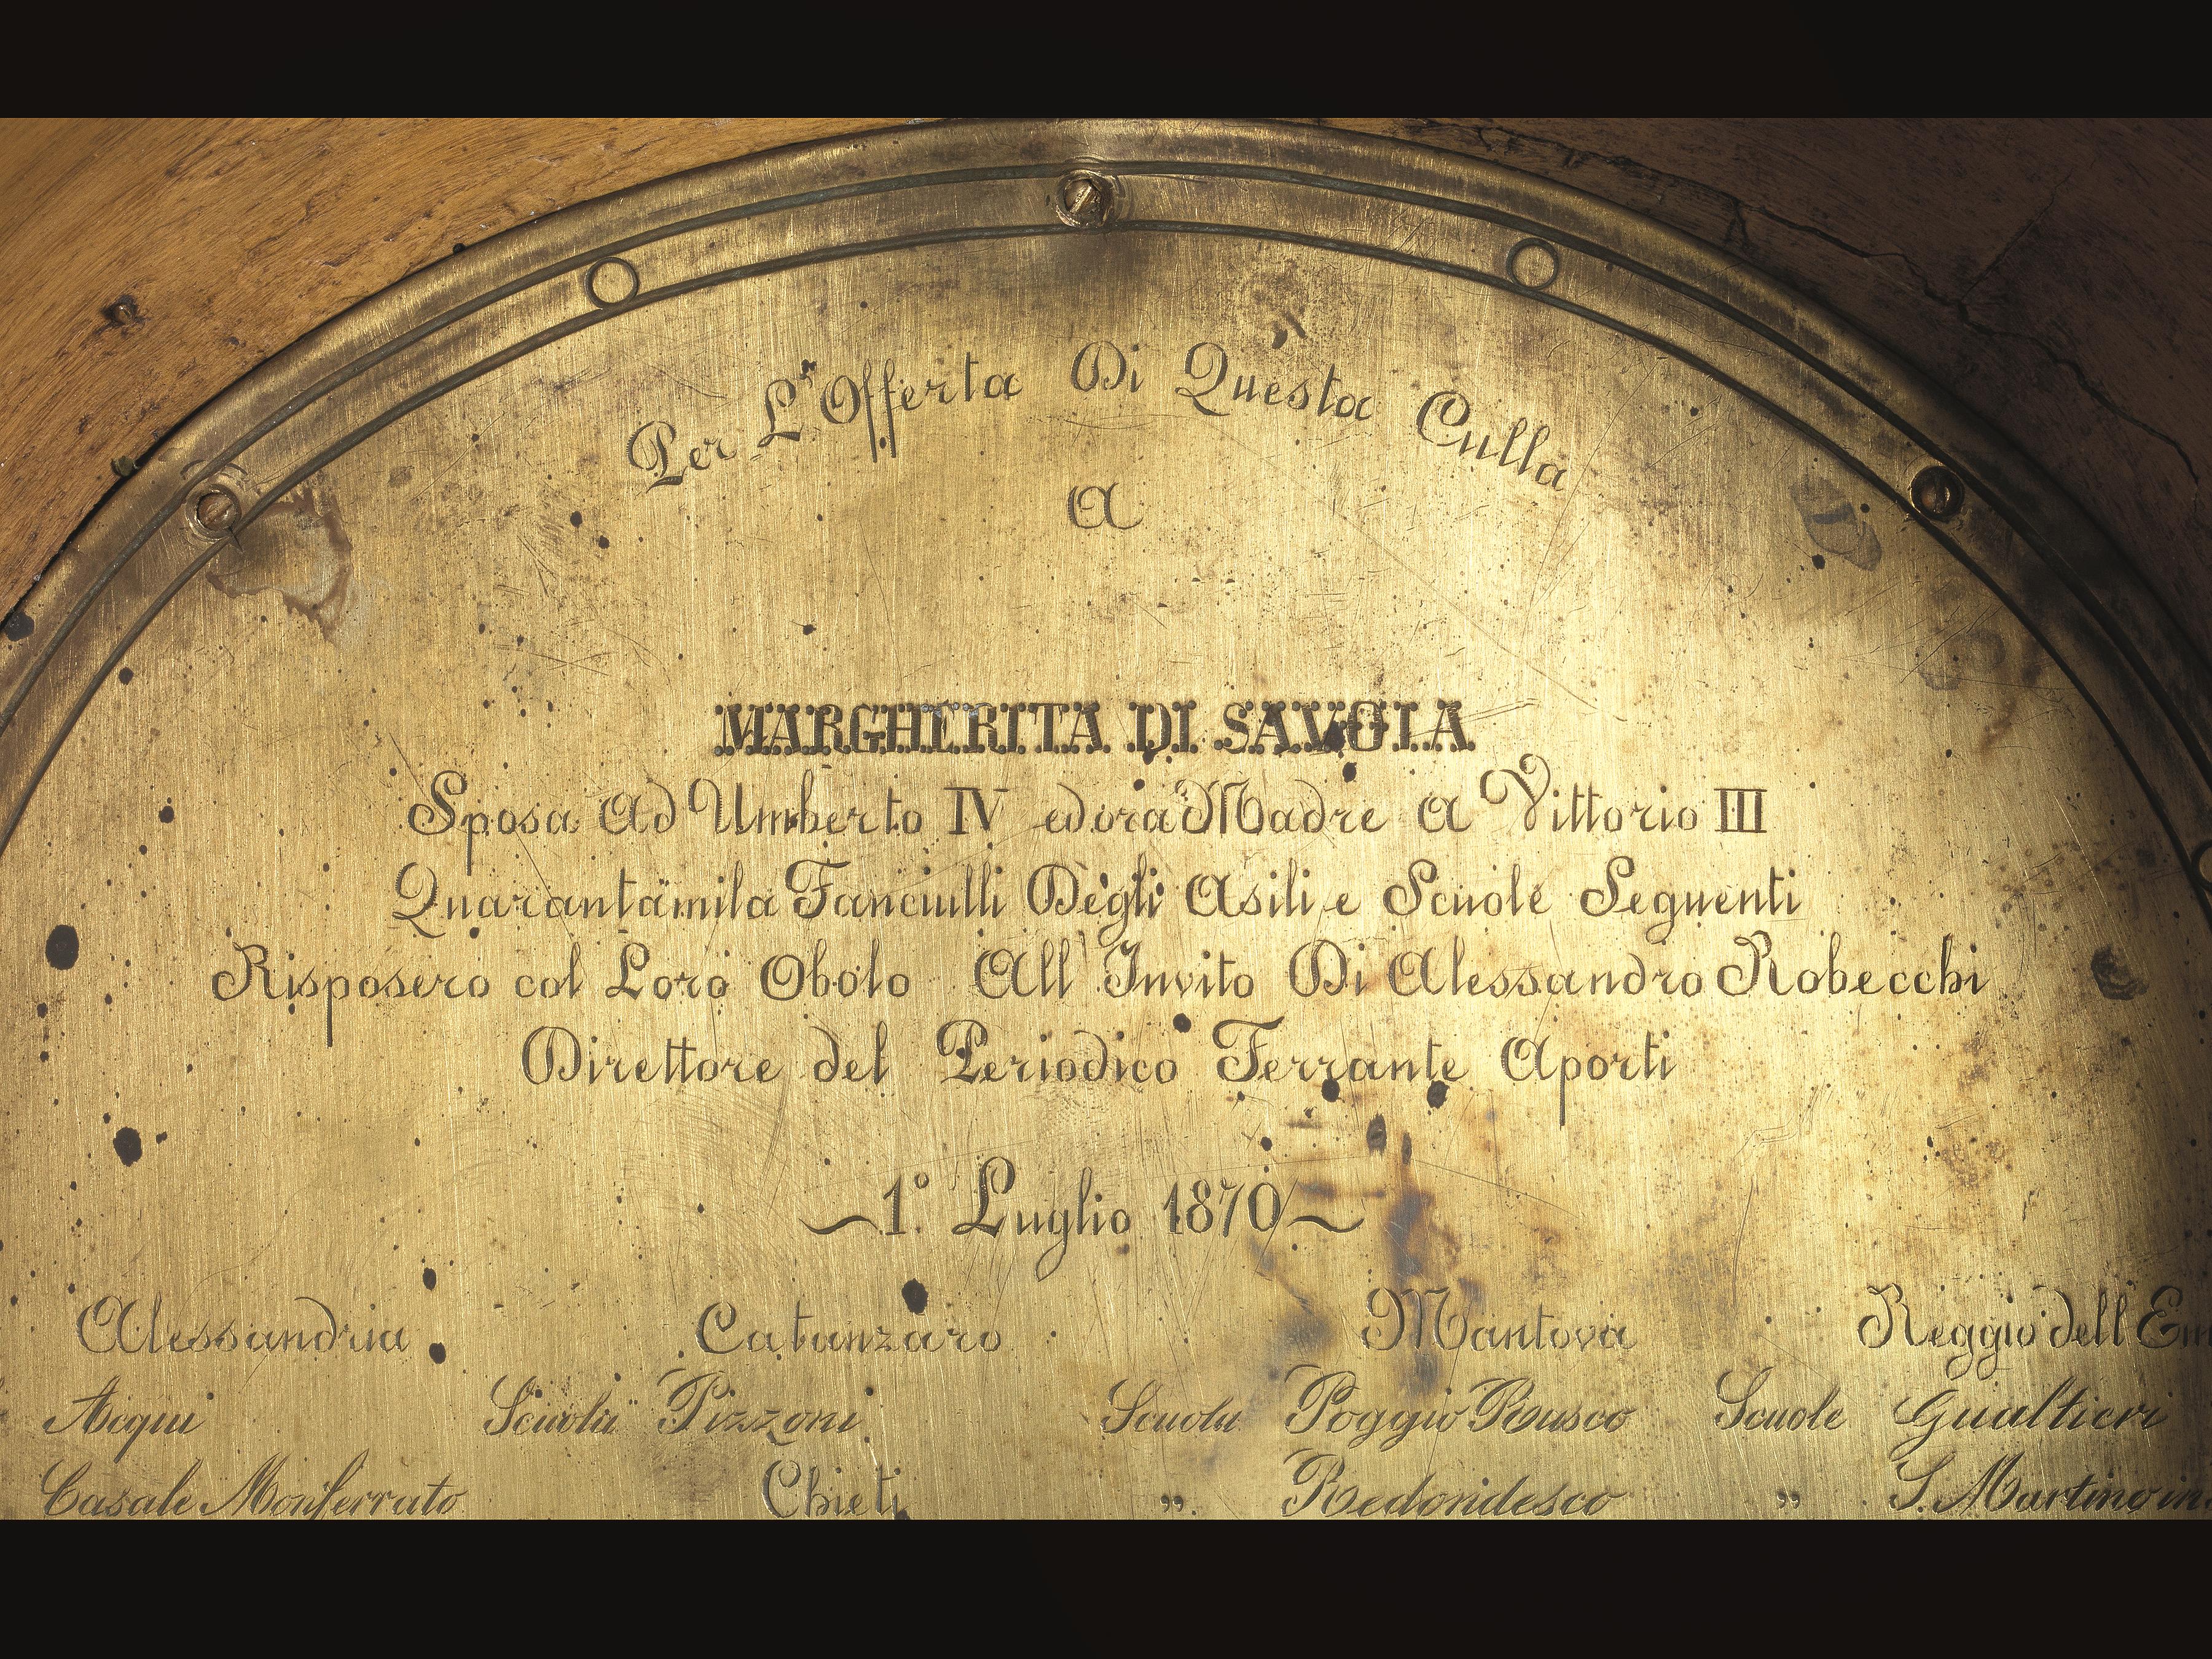 Per L'Offerta Di Questa Culla
A
MARGHERITA DI SAVOIA
Sposa Ad Umberto IV ed ora Madre A Vittorio III
Quarantamila Fanciulli Degli Asili e Scuole Seguenti
Risposero col Loro Obolo All' Invito Di Alessandro Robecchi
Direttore del Periodico Ferrante Aporti
~1.° Luglio 1870~
Alessandria Catanzaro Mantova Reggio dell'Em
Acqui Scuola Pizzoni Scuola Poggio Rusco Scuole Gualtieri
Casale Monferrato Chieti „ Redondesco „ S. Martino in